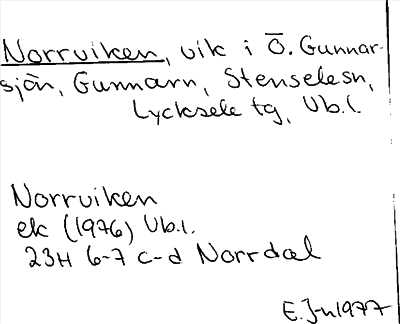 Norrviken, vik i Ö. Gunnar-
sjön, Gunnarn, Stenselesn,
Lycksele tg, Vb.l.
Norrviken
ek (1976) Vb.l.
23H 6-7 c-d Norrdal
E.J-n 1977